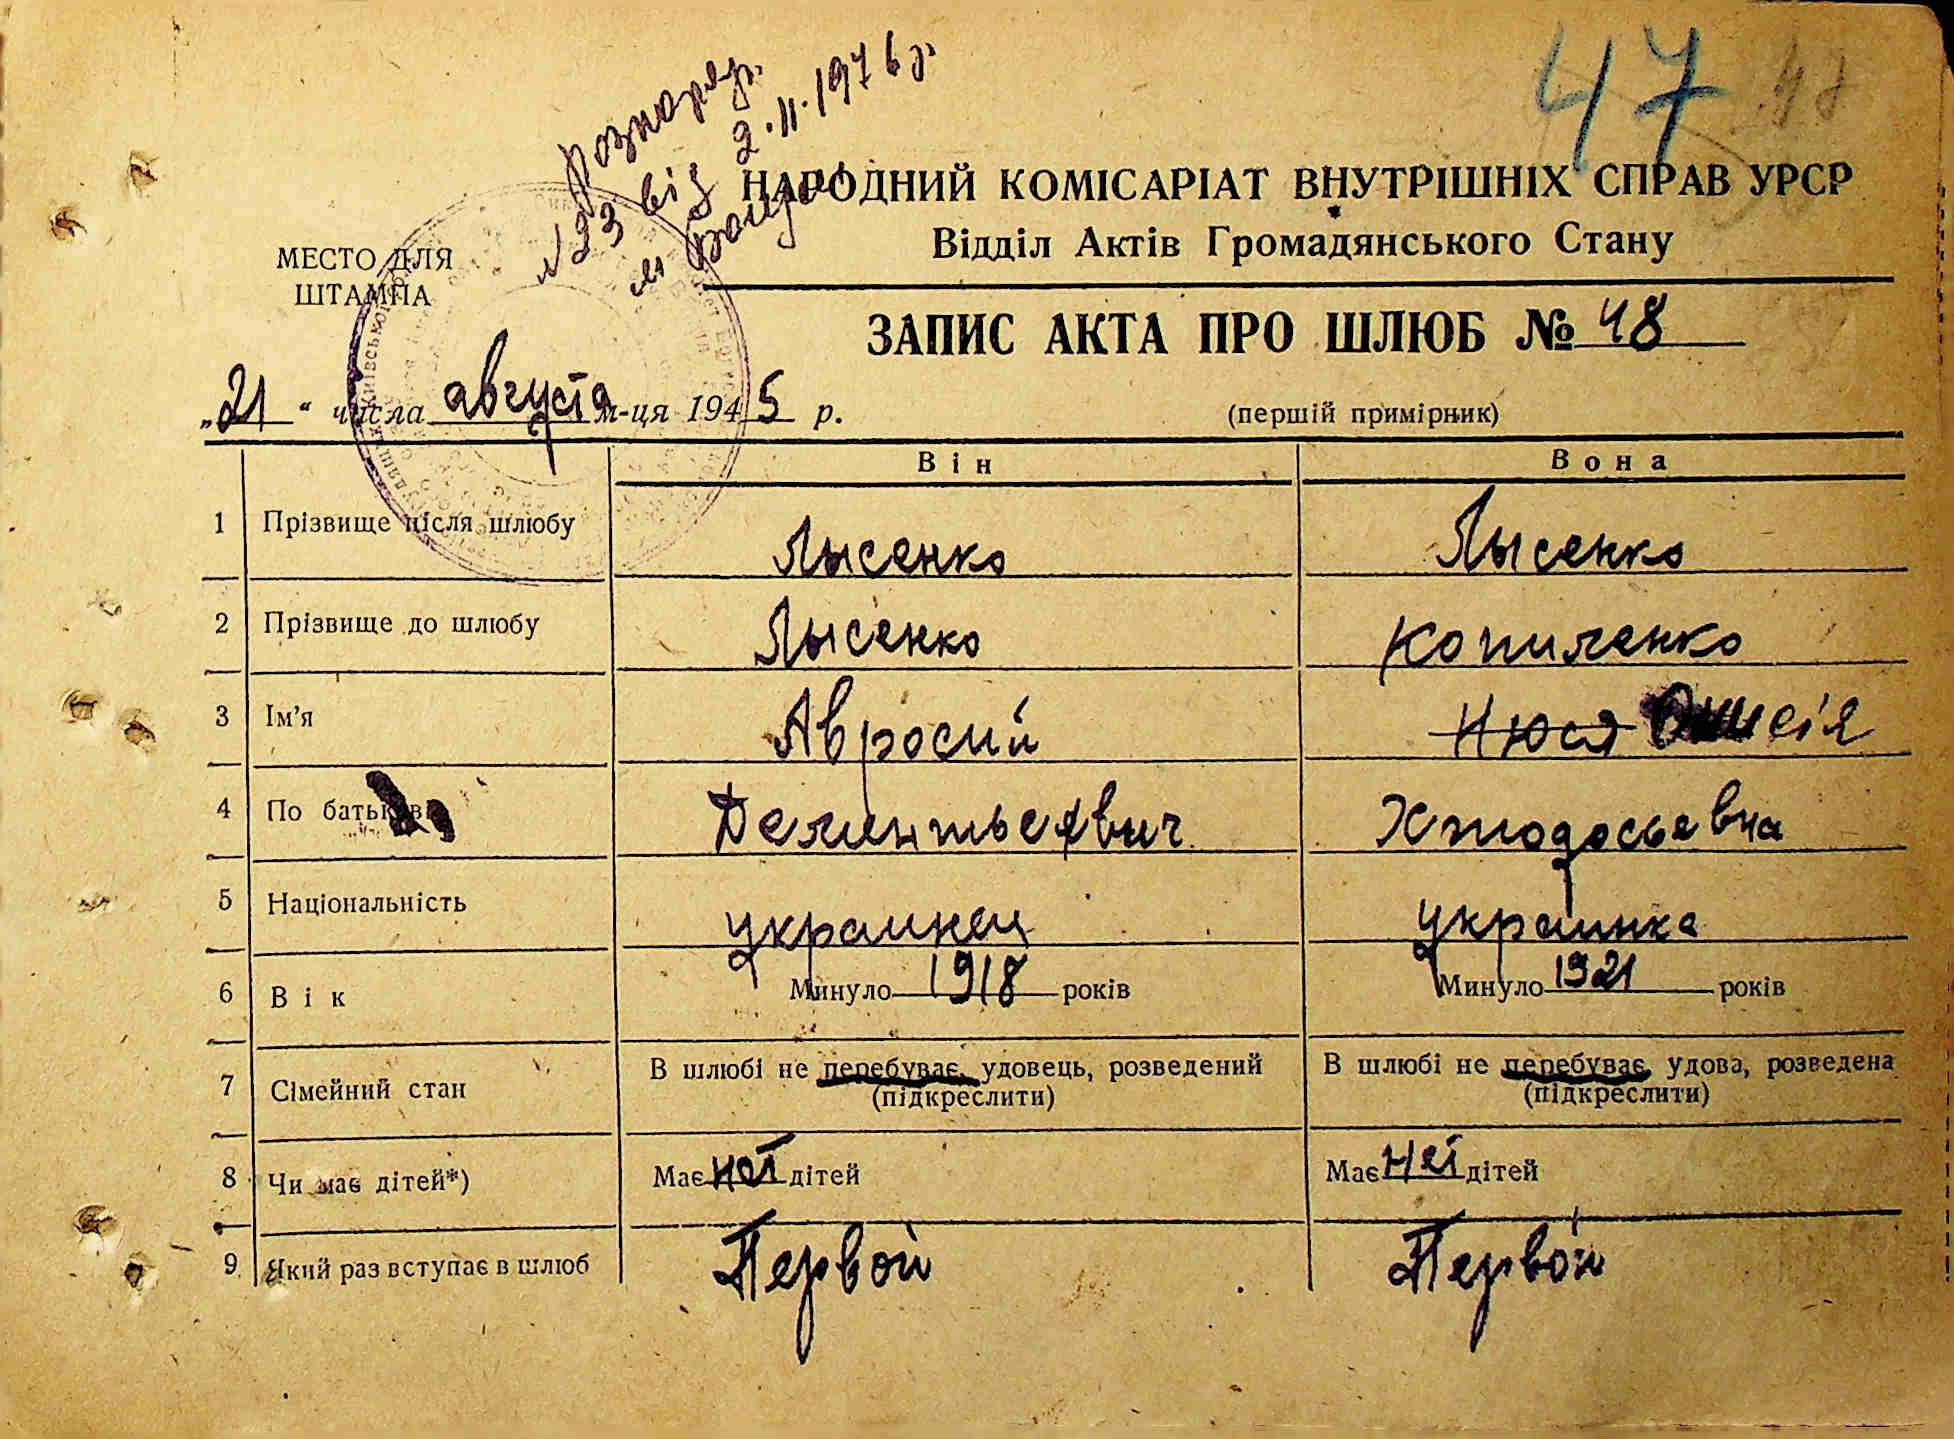 47
Розпоряд.
№23 від 2.11.1976 р.
НАРОДНИЙ КОМІСАРІАТ ВНУТРІШНІХ СПРАВ УРСР
Відділ Актів Громадянського Стану
МЕСТО ДЛЯ
ШТАМПА
ЗАПИС АКТА ПРО ШЛЮБ № 48
„21“ числа августа м-ця 1945 р.
(першій примірник)
Він Вона
1 Прізвище після шлюбу Лысенко Лысенко
2 Прізвище до шлюбу Лысенко Копиленко
3 Ім’я Авросий Нюся Онисія
4 По батькові Дементьевич Хтодосьевна
5 Національність украинец украинка
6 Вік Минуло 1918 років Минуло 1921 років
7 Сімейний стан В шлюбі не перебуває, удовець, розведений В шлюбі не перебуває, удова, розведена
(підкреслити) (підкреслити)
8 Чи має дітей*) Має неї дітей Має неї дітей
9 Який раз вступає в шлюб Первой Первой